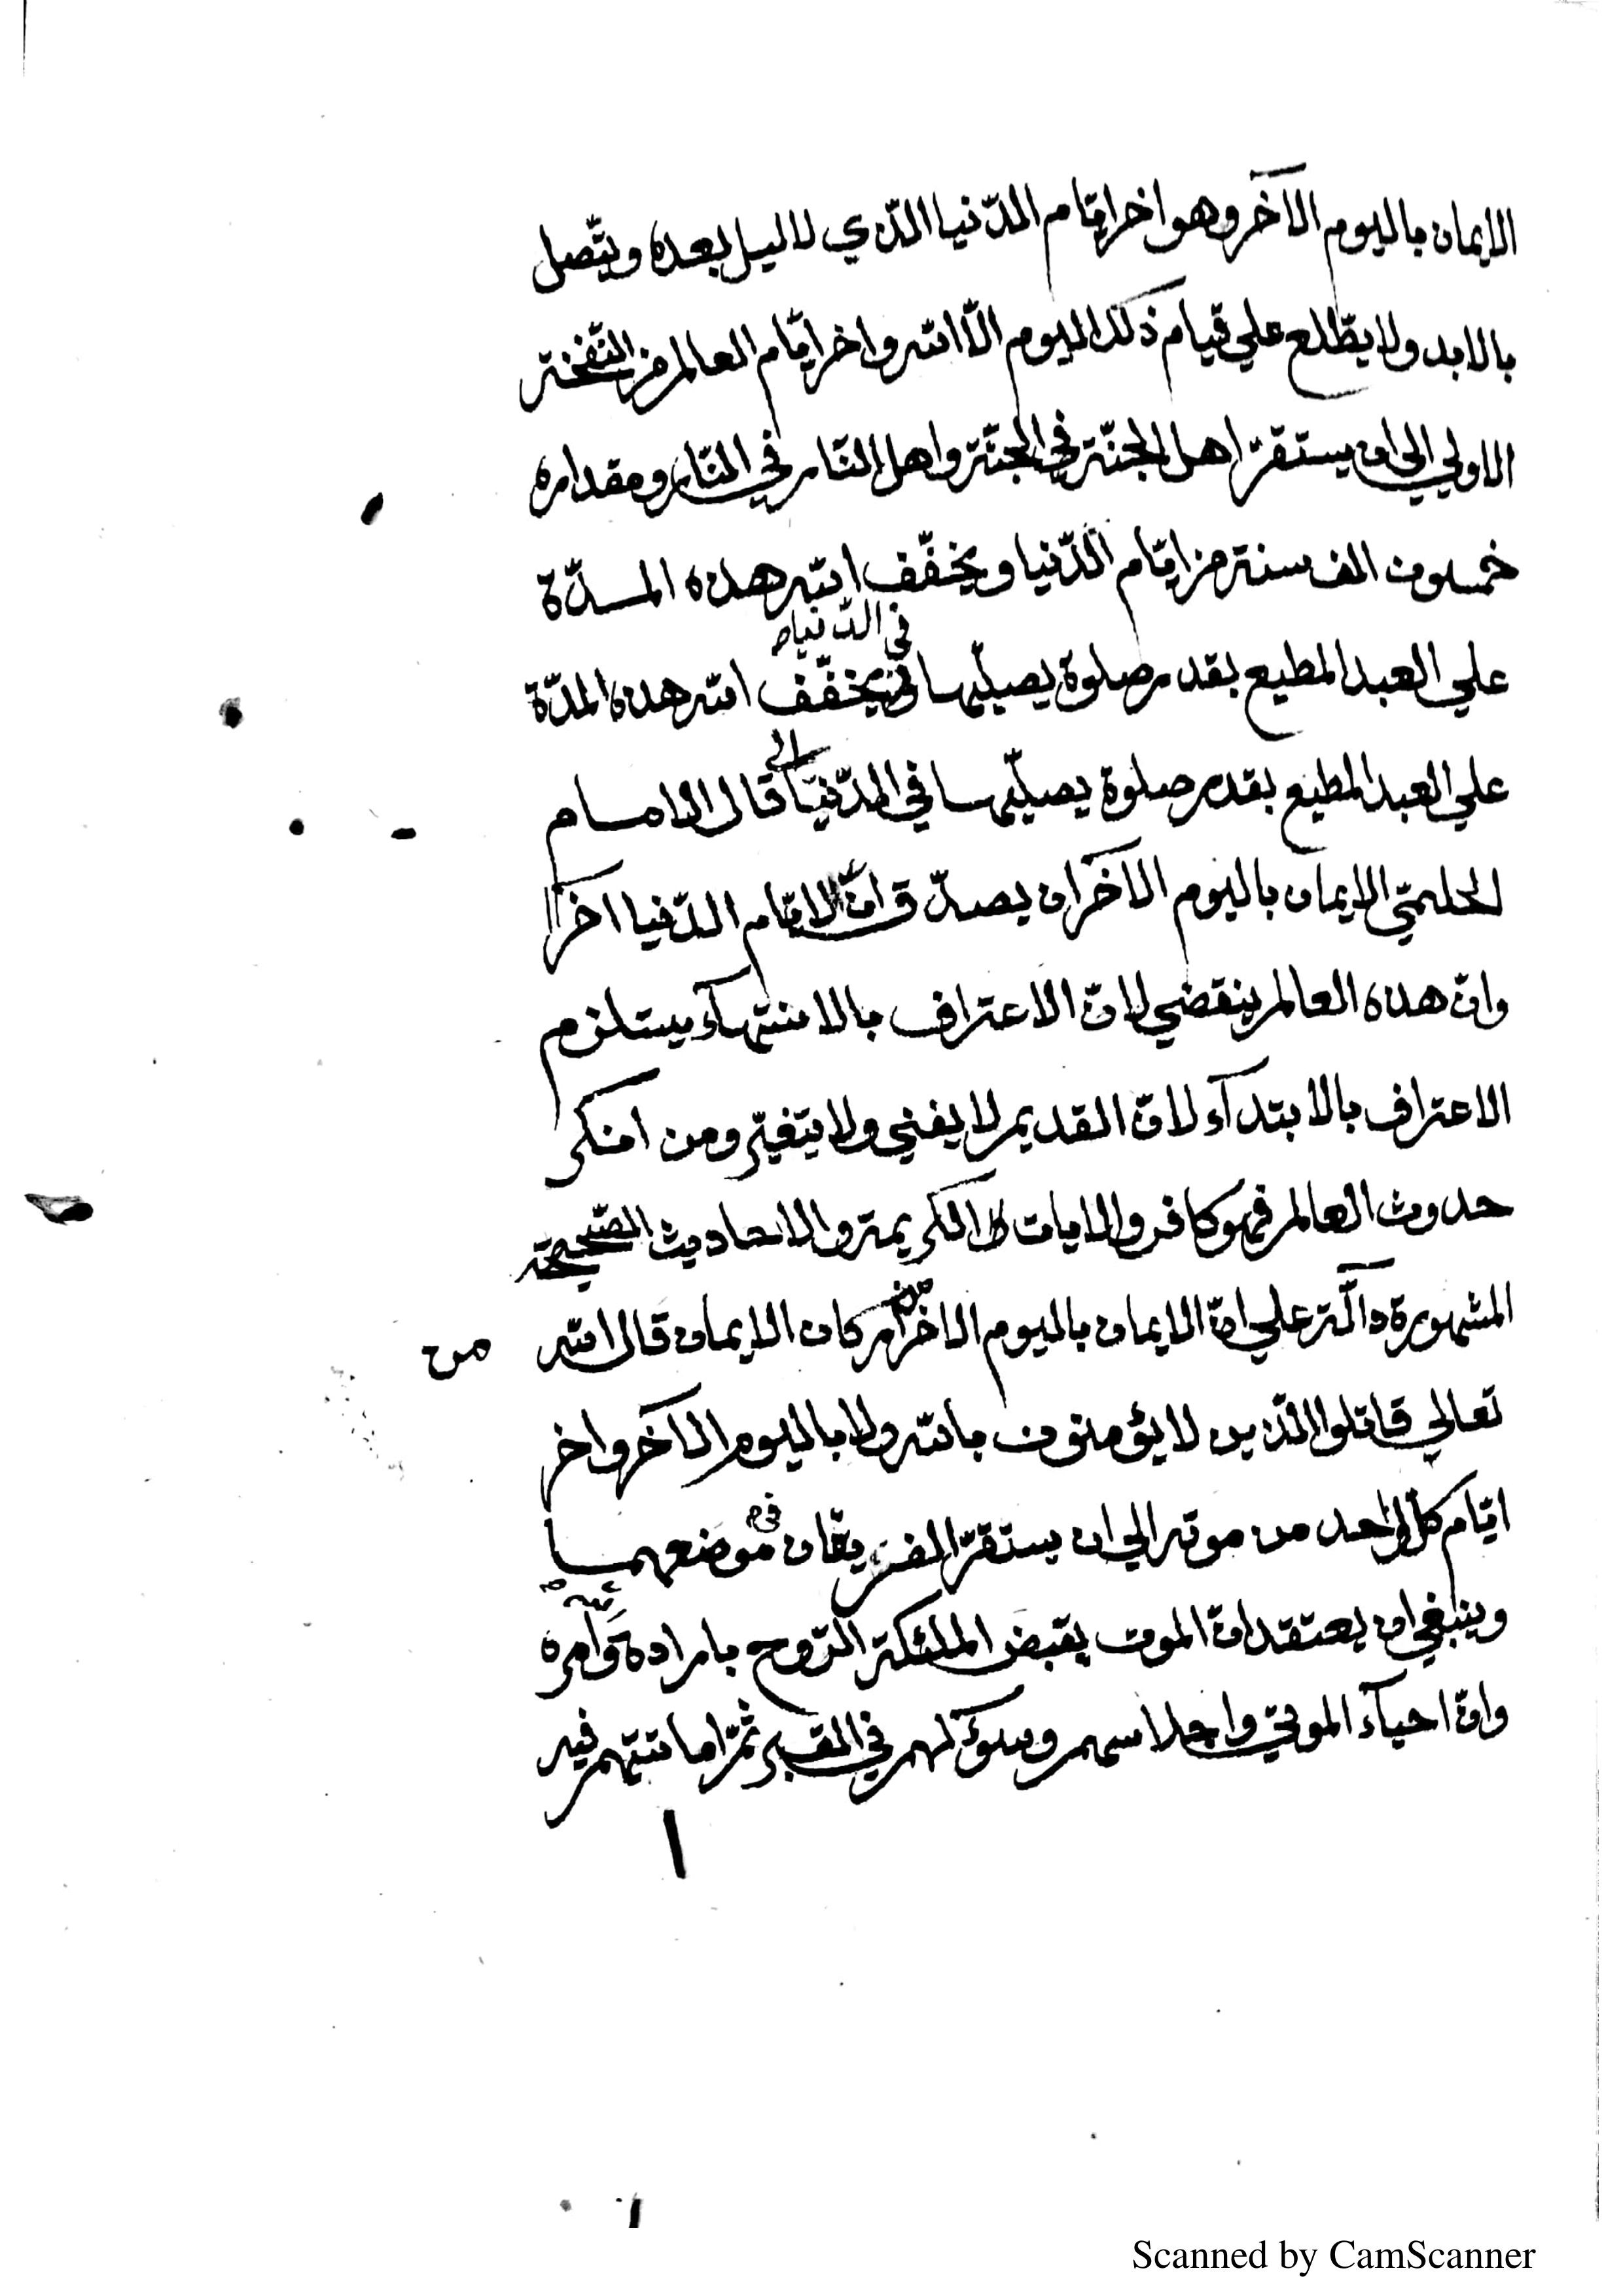 الايمان باليوم الآخر وهو اخر ايّام الدّنيا الّذي لا ليل بعده ويتّصل
بالابد ولا يطّلع علي قيام ذلك اليوم الّا الله واخر ايّام العالم من النّفخة
الاولي الي ان يستقرّ اهل الجنّة في الجنّة واهل النّار في النّار ومقداره
خمسون الف سنة من ايّام الدّنيا ويخفّف الله هذه المدّة
في الدّنيا
علي العبد المطيع بقدر صلوة يصلّيها ويخفّف الله هذه المدّة
علي العبد المطيع بقدر صلوة يصلّيها في الدّنيا قال الامام
الحليمّي الايمان باليوم الآخر ان يصدّق انّ لايّام الدّنيا اخرا
وانّ هذه العالم ينقضي لانّ الاعتراف بالانتهآء يستلزم
الاعتراف بالابتدآء لانّ القديم لا يفني ولا يتغيّر ومن انكر
حدوث العالم فهو كافر والايات الكريمة والاحاديث الصّحيحة
المشهورة دآلّة علي انّ الايمان باليوم الاخر اركان الايمان قال الله
من
تعالي قاتلوا الّذين لا يؤمنون بالله ولا باليوم الآخر واخر
ايّام كلّ واحد من موته الي ان يستقرّ الفريقان موضعهما
في
وينبغي ان يعتقد انّ الموت بقبض الملئكة الرّوح بارادة وامره
وانّ احيآء الموتي واجلاسهم وسؤالهم في القبر ثمّ اماتتهم فيه
Scanned by CamScanner